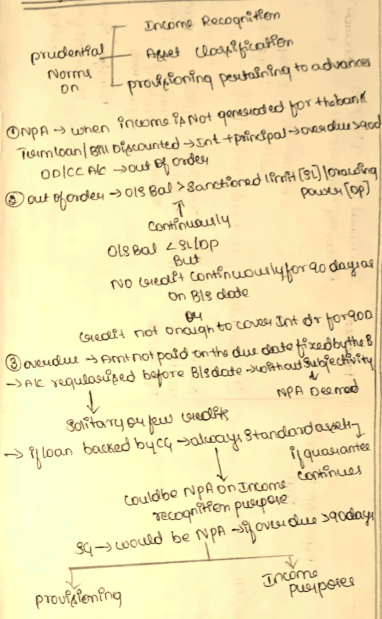 Income Recognition
prudential Norms on
Asset Classification
provisioning pertaining to advances
① NPA → when income is Not generated for the bank
Term loan/Bill Discounted → Int + principal → overdue > 90D
OD/CC A/c → out of order
② out of order → O/S Bal > Sanctioned limit [SL]/drawing power [DP]
↑
Continuously
O/S Bal < SL/DP
But
No credit continuously for 90 days as
on B/s date
OR
Credit not enough to cover Int dr for 90D
③ overdue → Amt not paid on the due date fixed by the B
→ A/c regularised before B/s date → without subjectivity
↓
NPA Deemed
↓
Solitary or few credits
→ if loan backed by CG → always Standard asset → if guarantee continues
↓
Could be NPA on Income
recognition purpose
SG → would be NPA → if overdue > 90 days
provisioning
Income purposes